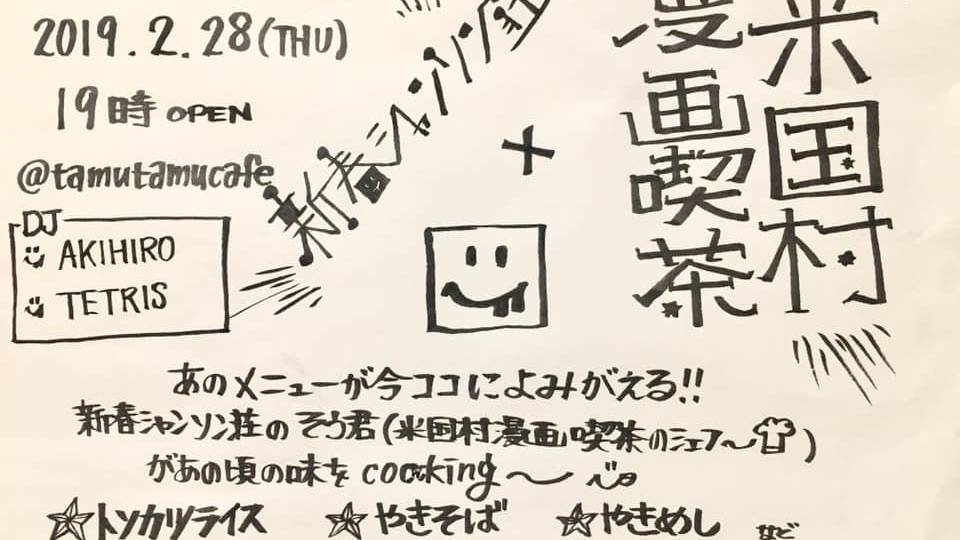 2019.2.28(THU)
19時 OPEN
@tamutamucafe
DJ
AKIHIRO
TETRIS
新春シャンソン荘
×
米国村
漫画喫茶
あのメニューが今ココによみがえる!!
新春シャンソン荘のそう君(米国村漫画喫茶のシェフ〜)
があの頃の味を coocking〜
☆トンカツライス ☆やきそば ☆やきめし など